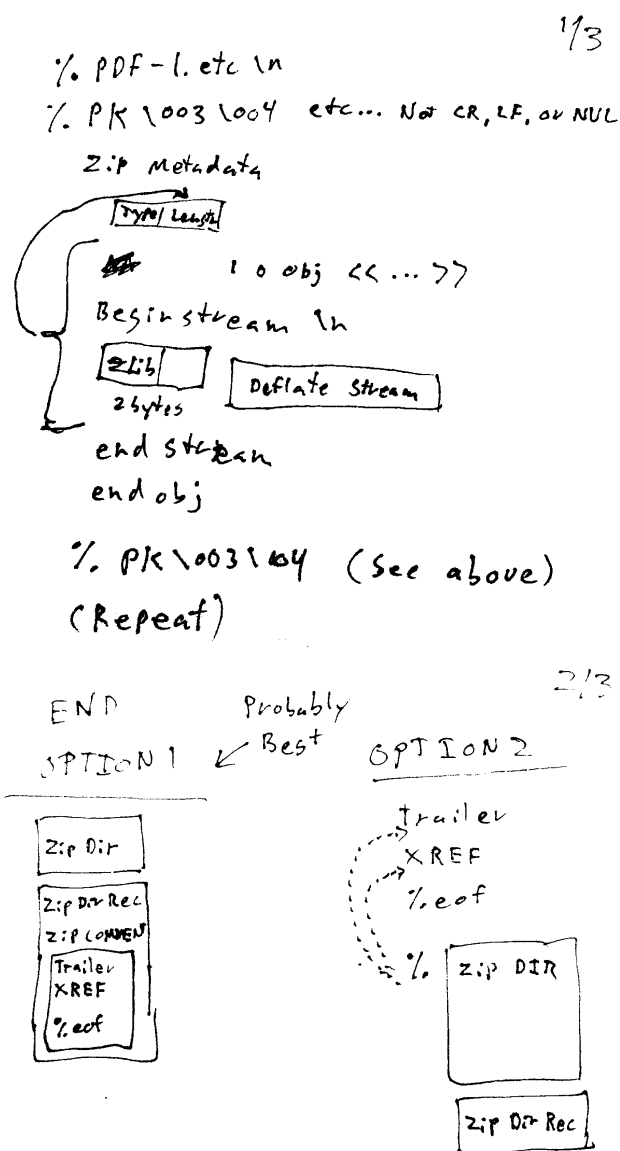 1/3
% PDF-1.etc \n
% PK \003 \004 etc... Not CR, LF, or NUL
Zip Metadata
Type/Length
1 0 obj << ... >>
Begin stream \n
ZLib
Deflate Stream
2 bytes
end stream
end obj
% PK \003 \004 (See above)
(Repeat)
2/3
END
Probably
Best
OPTION 1
OPTION 2
Zip Dir
Zip Dir Rec
ZIP COMMEN
Trailer
XREF
%eof
Trailer
XREF
%eof
% Zip DIR
Zip Dir Rec